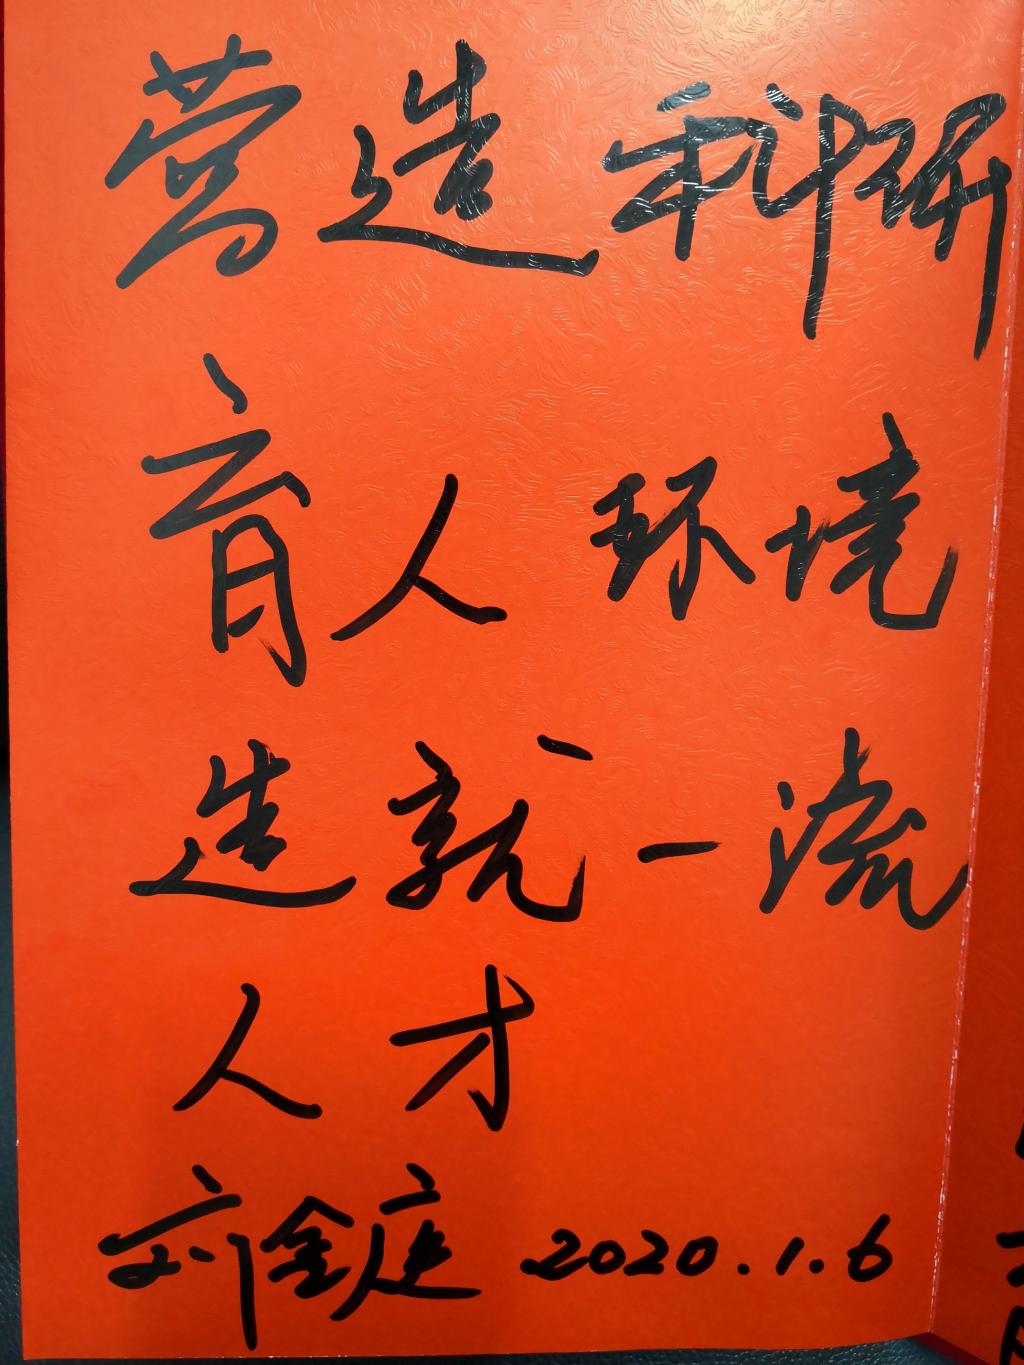 营造科研
育人环境
造就一流
人才
刘金庭 2020.1.6